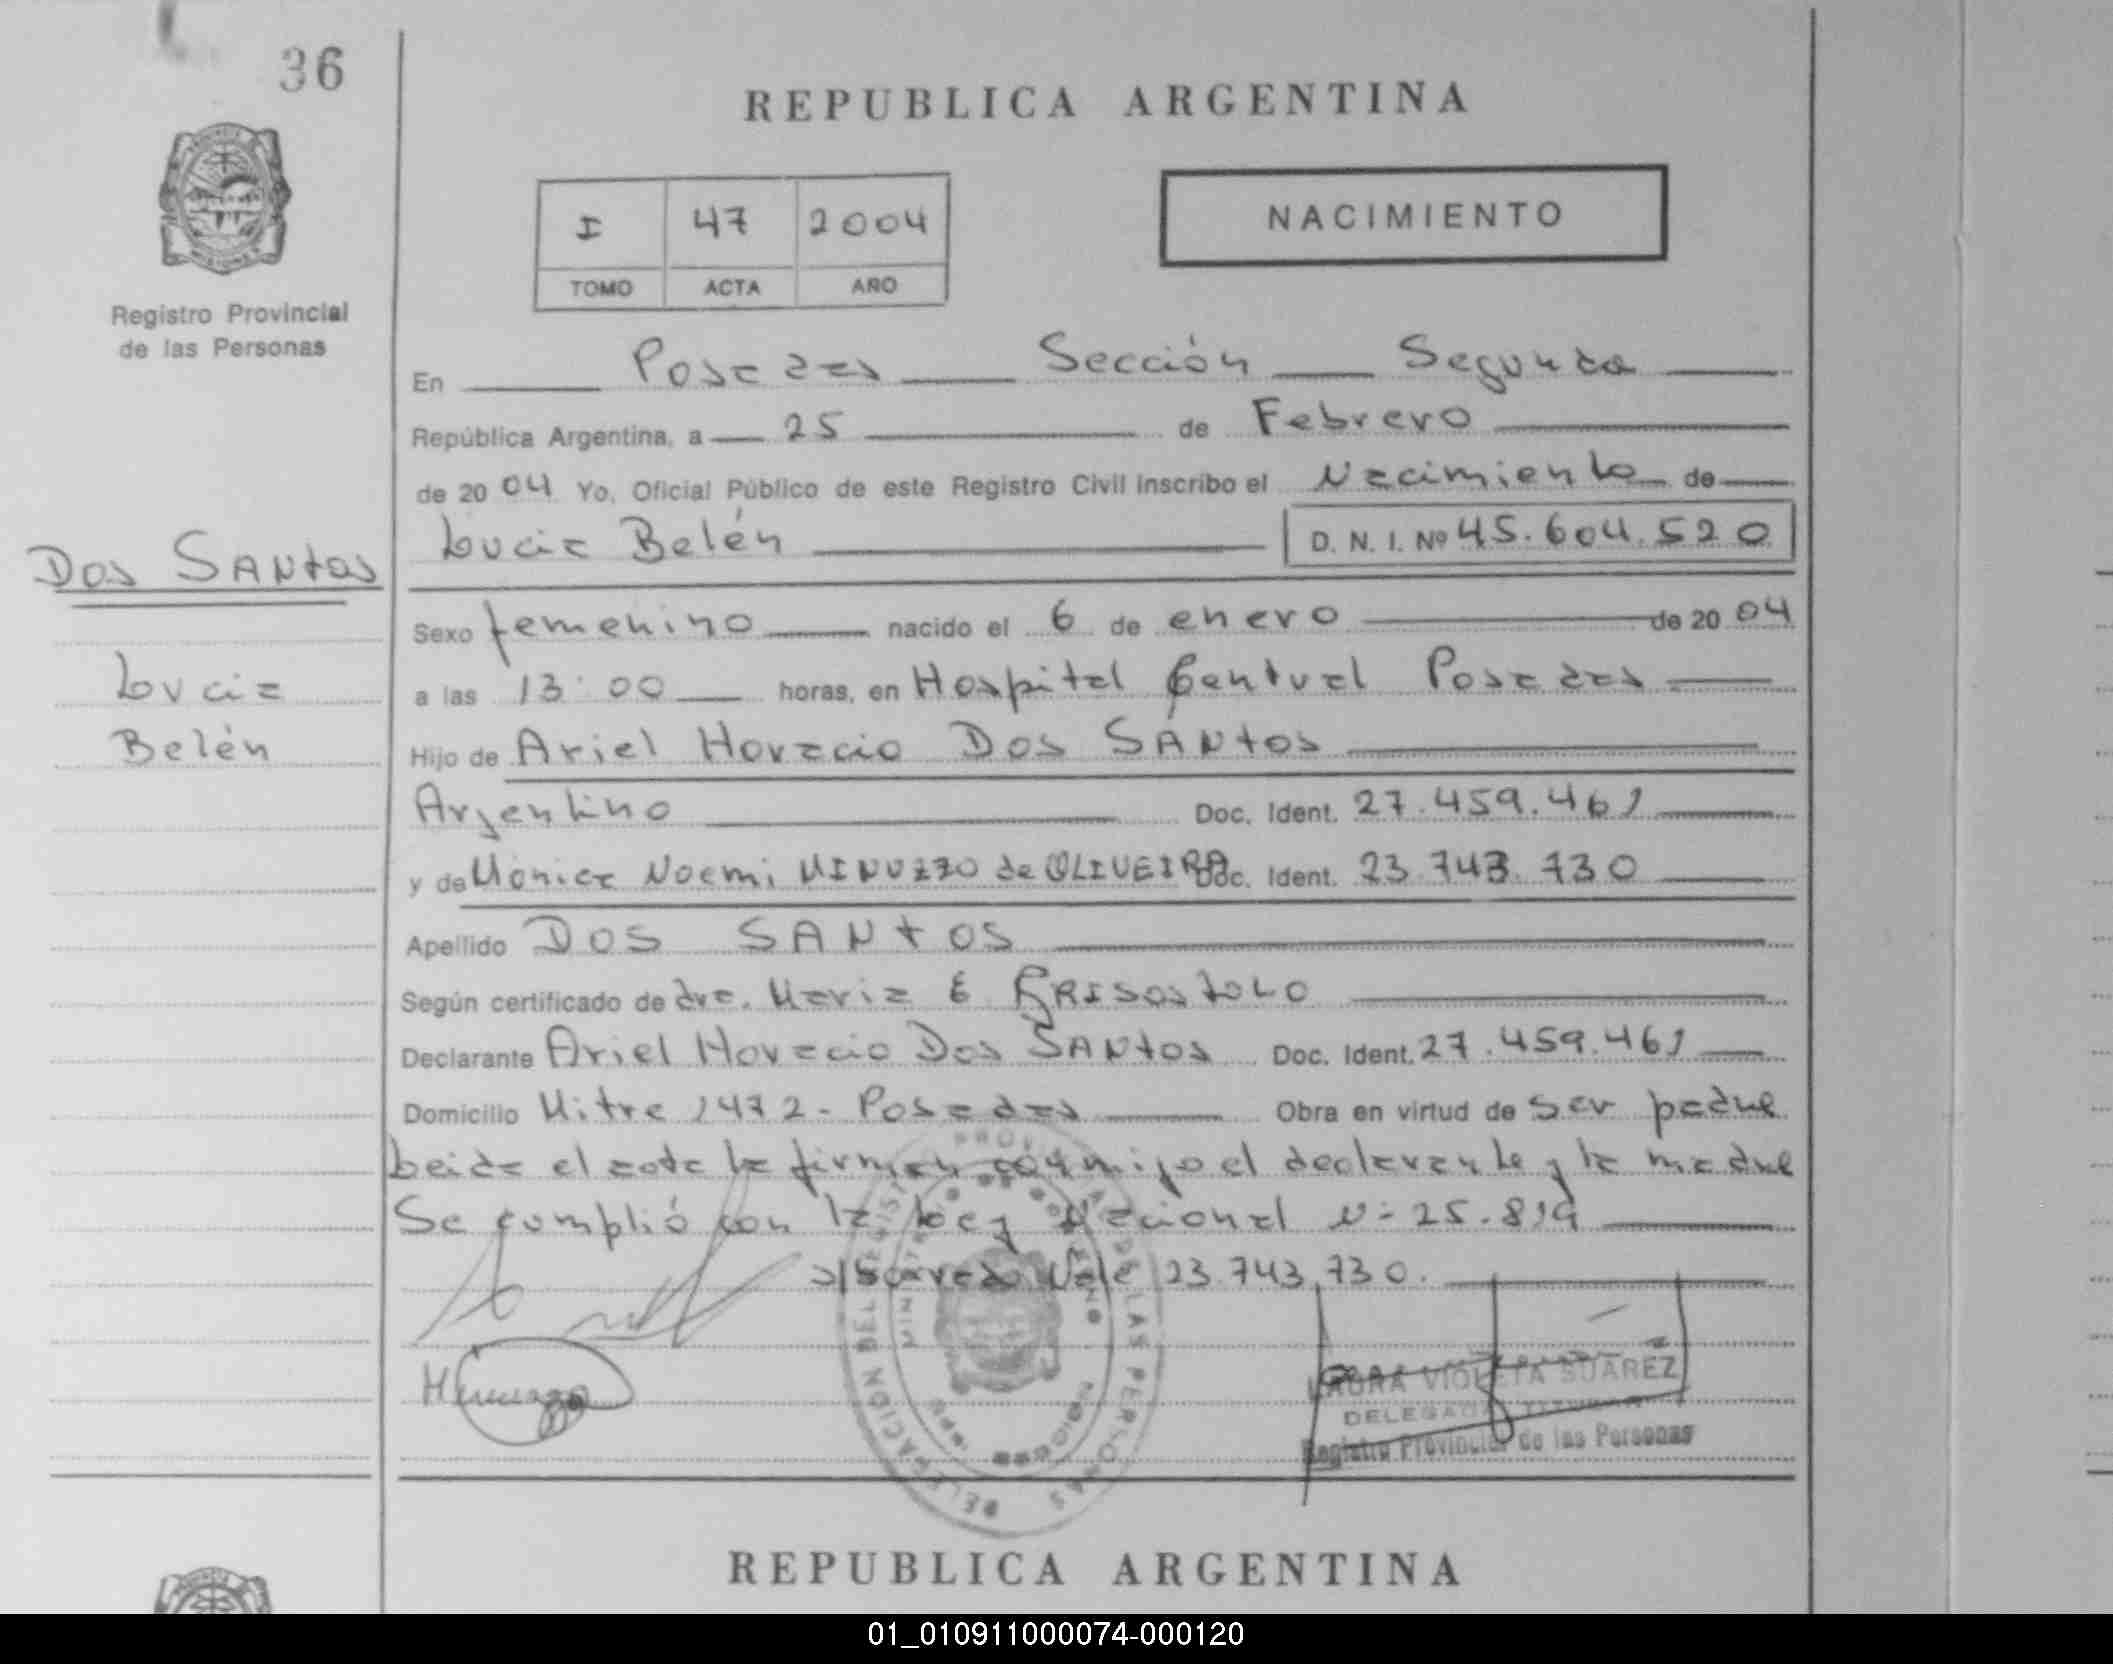 36
REPUBLICA ARGENTINA
I 47 2004
TOMO ACTA AÑO
NACIMIENTO
Registro Provincial
de las Personas
En Posadas Sección Segunda
República Argentina, a 25 de Febrero
de 2004 Yo, Oficial Público de este Registro Civil inscribo el Nacimiento de
Lucia Belén D. N. I. Nº 45.604.520
Dos SANtos
Lucia
Belén
Sexo femenino nacido el 6 de enero de 2004
a las 13:00 horas, en Hospital Central Posadas
Hijo de Ariel Horacio Dos SANtos
Argentino Doc. Ident. 27.459.461
y de Monica Noemi MINUZZO de OLIVEIRA Doc. Ident. 23.743.730
Apellido DOS SANtOS
Según certificado de dra. Maria E GRISOSTOLO
Declarante Ariel Horacio Dos SANtos Doc. Ident. 27.459.461
Domicilio Mitre 1472 - Posadas Obra en virtud de ser padre
Leida el acta la firman conmigo el declarante y la madre
Se cumplió con la Ley Nacional Nº 25.819
s/ Vale 23.743.730.
MINISTERIO DE GOBIERNO
DELEGACION DEL REGISTRO PROVINCIAL DE LAS PERSONAS
LAURA VIOLETA SUAREZ
DELEGADA TITULAR
Registro Provincial de las Personas
REPUBLICA ARGENTINA
01_010911000074-000120